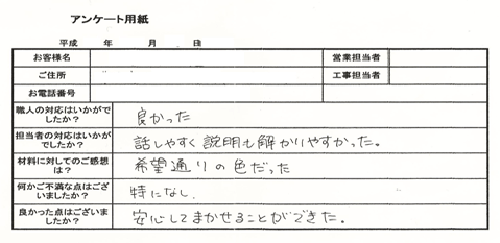 アンケート用紙
平成 年 月 日
お客様名 営業担当者
ご住所 工事担当者
お電話番号
職人の対応はいかがで
したか?
良かった
担当者の対応はいかが
でしたか?
話しやすく説明も解かりやすかった。
材料に対してのご感想
は?
希望通りの色だった
何かご不満な点はござ
いましたか?
特になし
良かった点はございま
したか?
安心してまかせることができた。